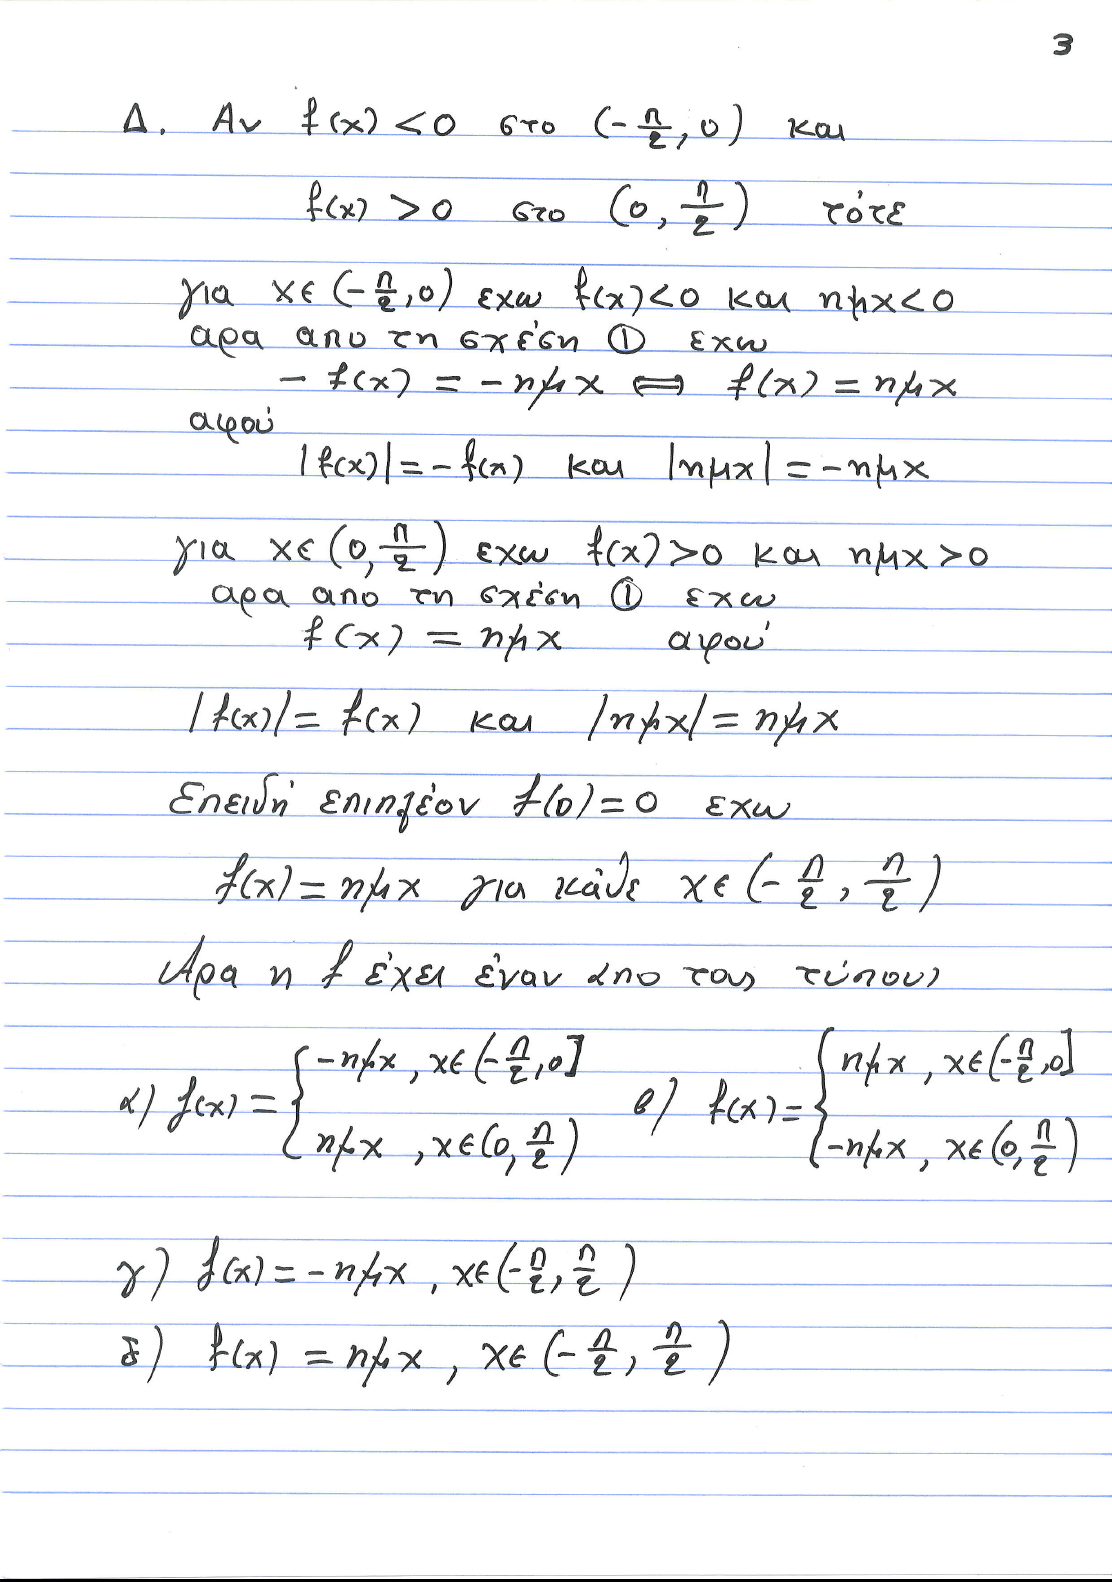 3
Δ. Αν f(x) < 0 στο (-π/2, 0) και
f(x) > 0 στο (0, π/2) τότε
για x∈(-π/2,0) εχω f(x)<0 και ημx<0
αρα απο τη σχέση ① εχω
- f(x) = -ημx ⟺ f(x) = ημx
αφού
|f(x)| = -f(x) και |ημx| = -ημx
για x∈(0, π/2) εχω f(x)>0 και ημx>0
αρα απο τη σχέση ① εχω
f(x) = ημx αφού
|f(x)| = f(x) και |ημx| = ημx
Επειδή επιπλέον f(0)=0 εχω
f(x) = ημx για κάθε x∈(-π/2, π/2)
Αρα η f έχει έναν απο τους τύπους
α) f(x) = { -ημx, x∈(-π/2,0] β) f(x) = { ημx, x∈(-π/2,0]
ημx, x∈(0, π/2) -ημx, x∈(0, π/2)
γ) f(x) = -ημx, x∈(-π/2, π/2)
δ) f(x) = ημx, x∈(-π/2, π/2)